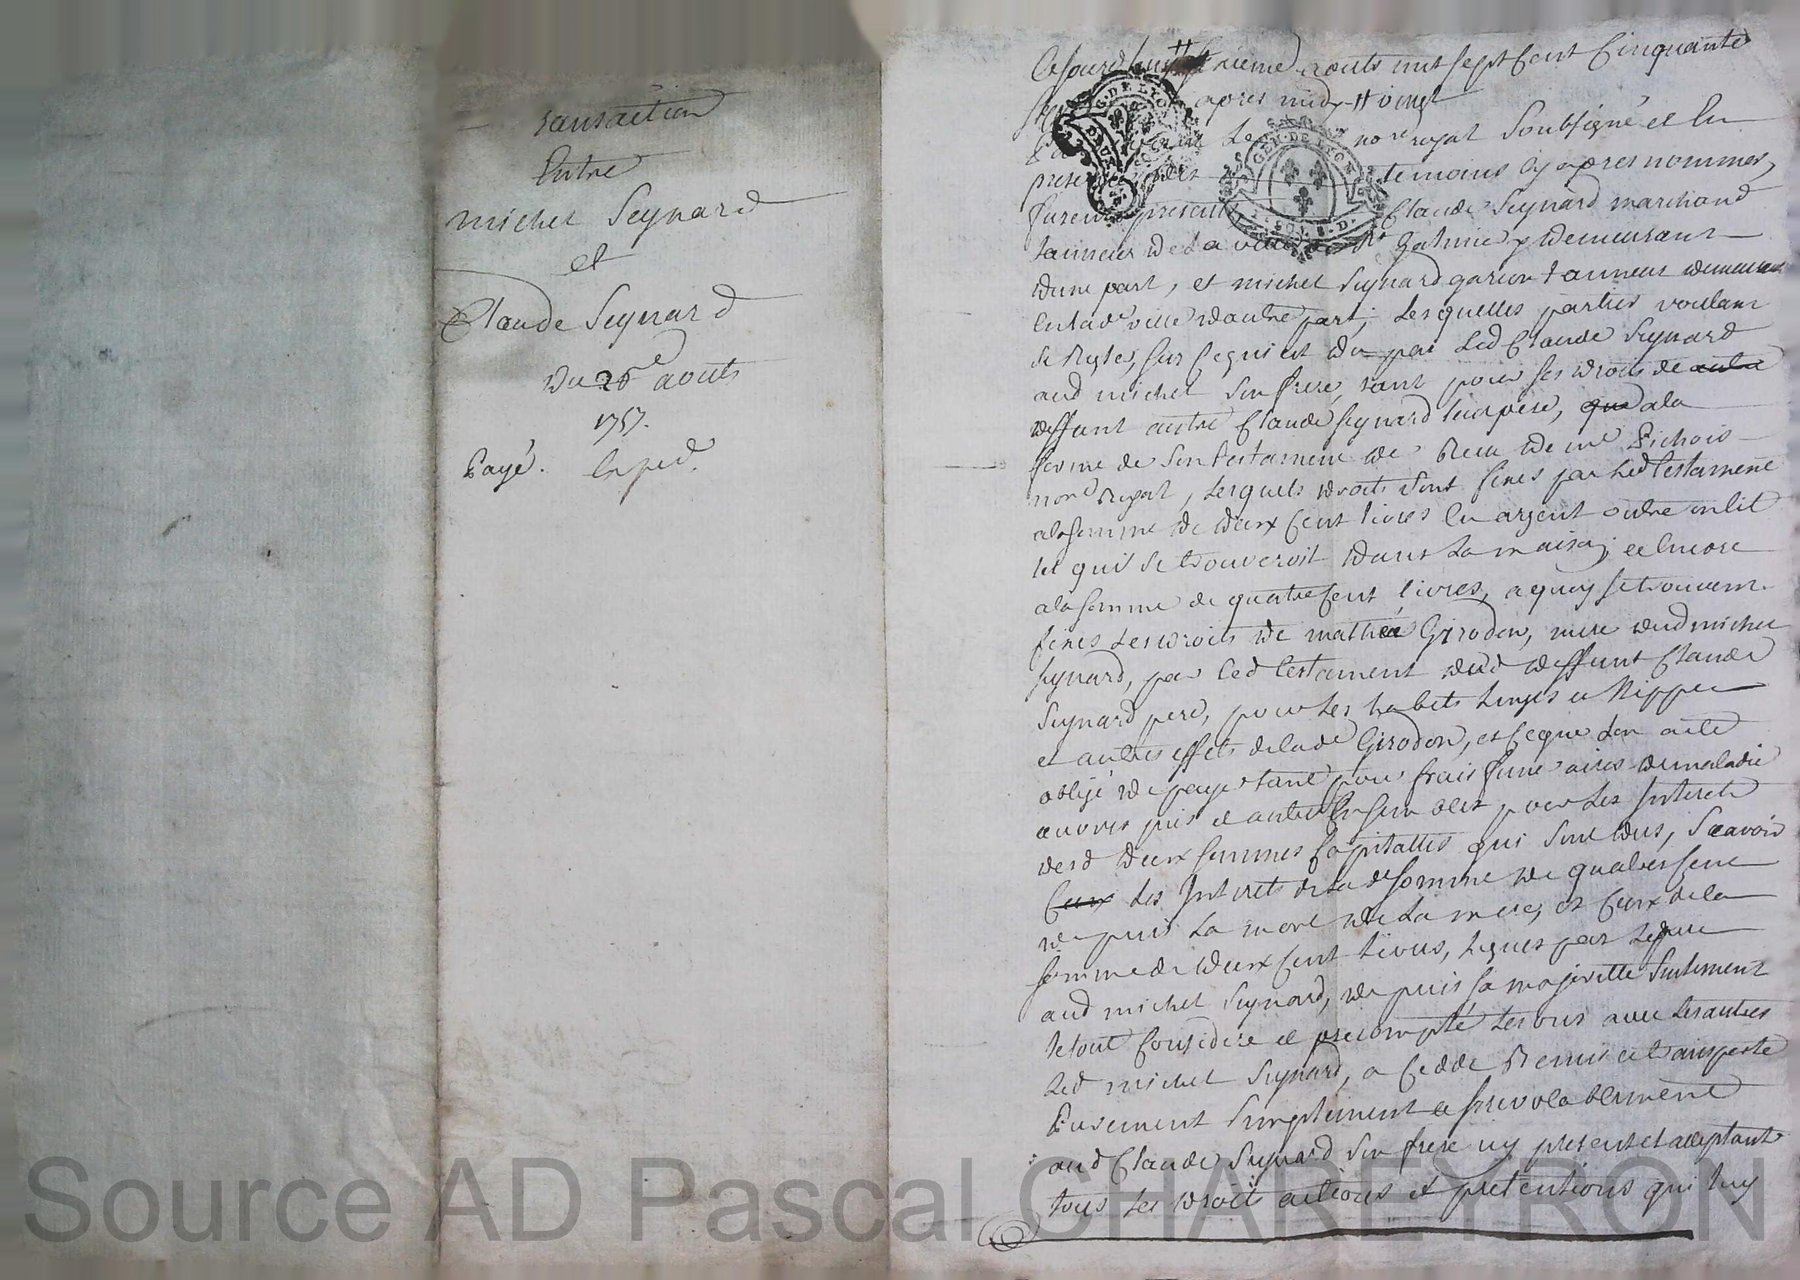 transaction
Entre
michel Seynard
et
Claude Seynard
du 26e aouts
1757.
Payé. Exped.
Cejourdhuy aouts mil sept cent Cinquante
apres midy
nore royal Soubsigné et En
presence des temoins cy apres nommes,
furent presents Claude Seynard marchand
tanneur de la ville de St Galmie y demeurant
dune part, et michel Seynard garçon tanneur
En lad ville dautre part, Lesquelles parties voulant
se Regler sur ce qui est du par Led Claude Seynard
aud michel Son frere, tant pour ses droits de
deffunt autre Claude Seynard leur père, a la
forme de Son testament de Reçu de me Pichois
nore Royal, Lesquels droits sont fixés par Led testament
a la somme de deux Cent livres En argent outre un lit
tel quil se trouveroit dans La maison; et Encore
a la somme de quatre Cent livres, a quoy se trouvent
fixes Les droits de mathié Girodon, mere dud michel
Seynard, par Led testament dud deffunt Claude
Seynard pere, pour Les habits Linges et Nippes
et autres effets de lade Girodon, et ce que Lon a été
obligé de payer tant pour frais funeraires de maladie
œuvres pies et autres Ensemble pour Les Interets
desd deux sommes Capitalles qui sont dus, Scavoir
Ceux Les Interets de La de somme de quatre Cent
depuis La mort de La mere, et Ceux de la
somme de deux Cent livres, Legues par Le pere
aud michel Seynard, depuis sa majoritte Seulement
le tout Considere et precompté Les uns avec Les autres
Led michel Seynard, a Cedde Remis et transporte
Purement Simplement et Irrevocablement
aud Claude Seynard Son frere icy present et acceptant
tous Les droits actions et pretentions qui luy
GEN. DE LYON
GEN. DE LYON
Source AD Pascal CHAREYRON